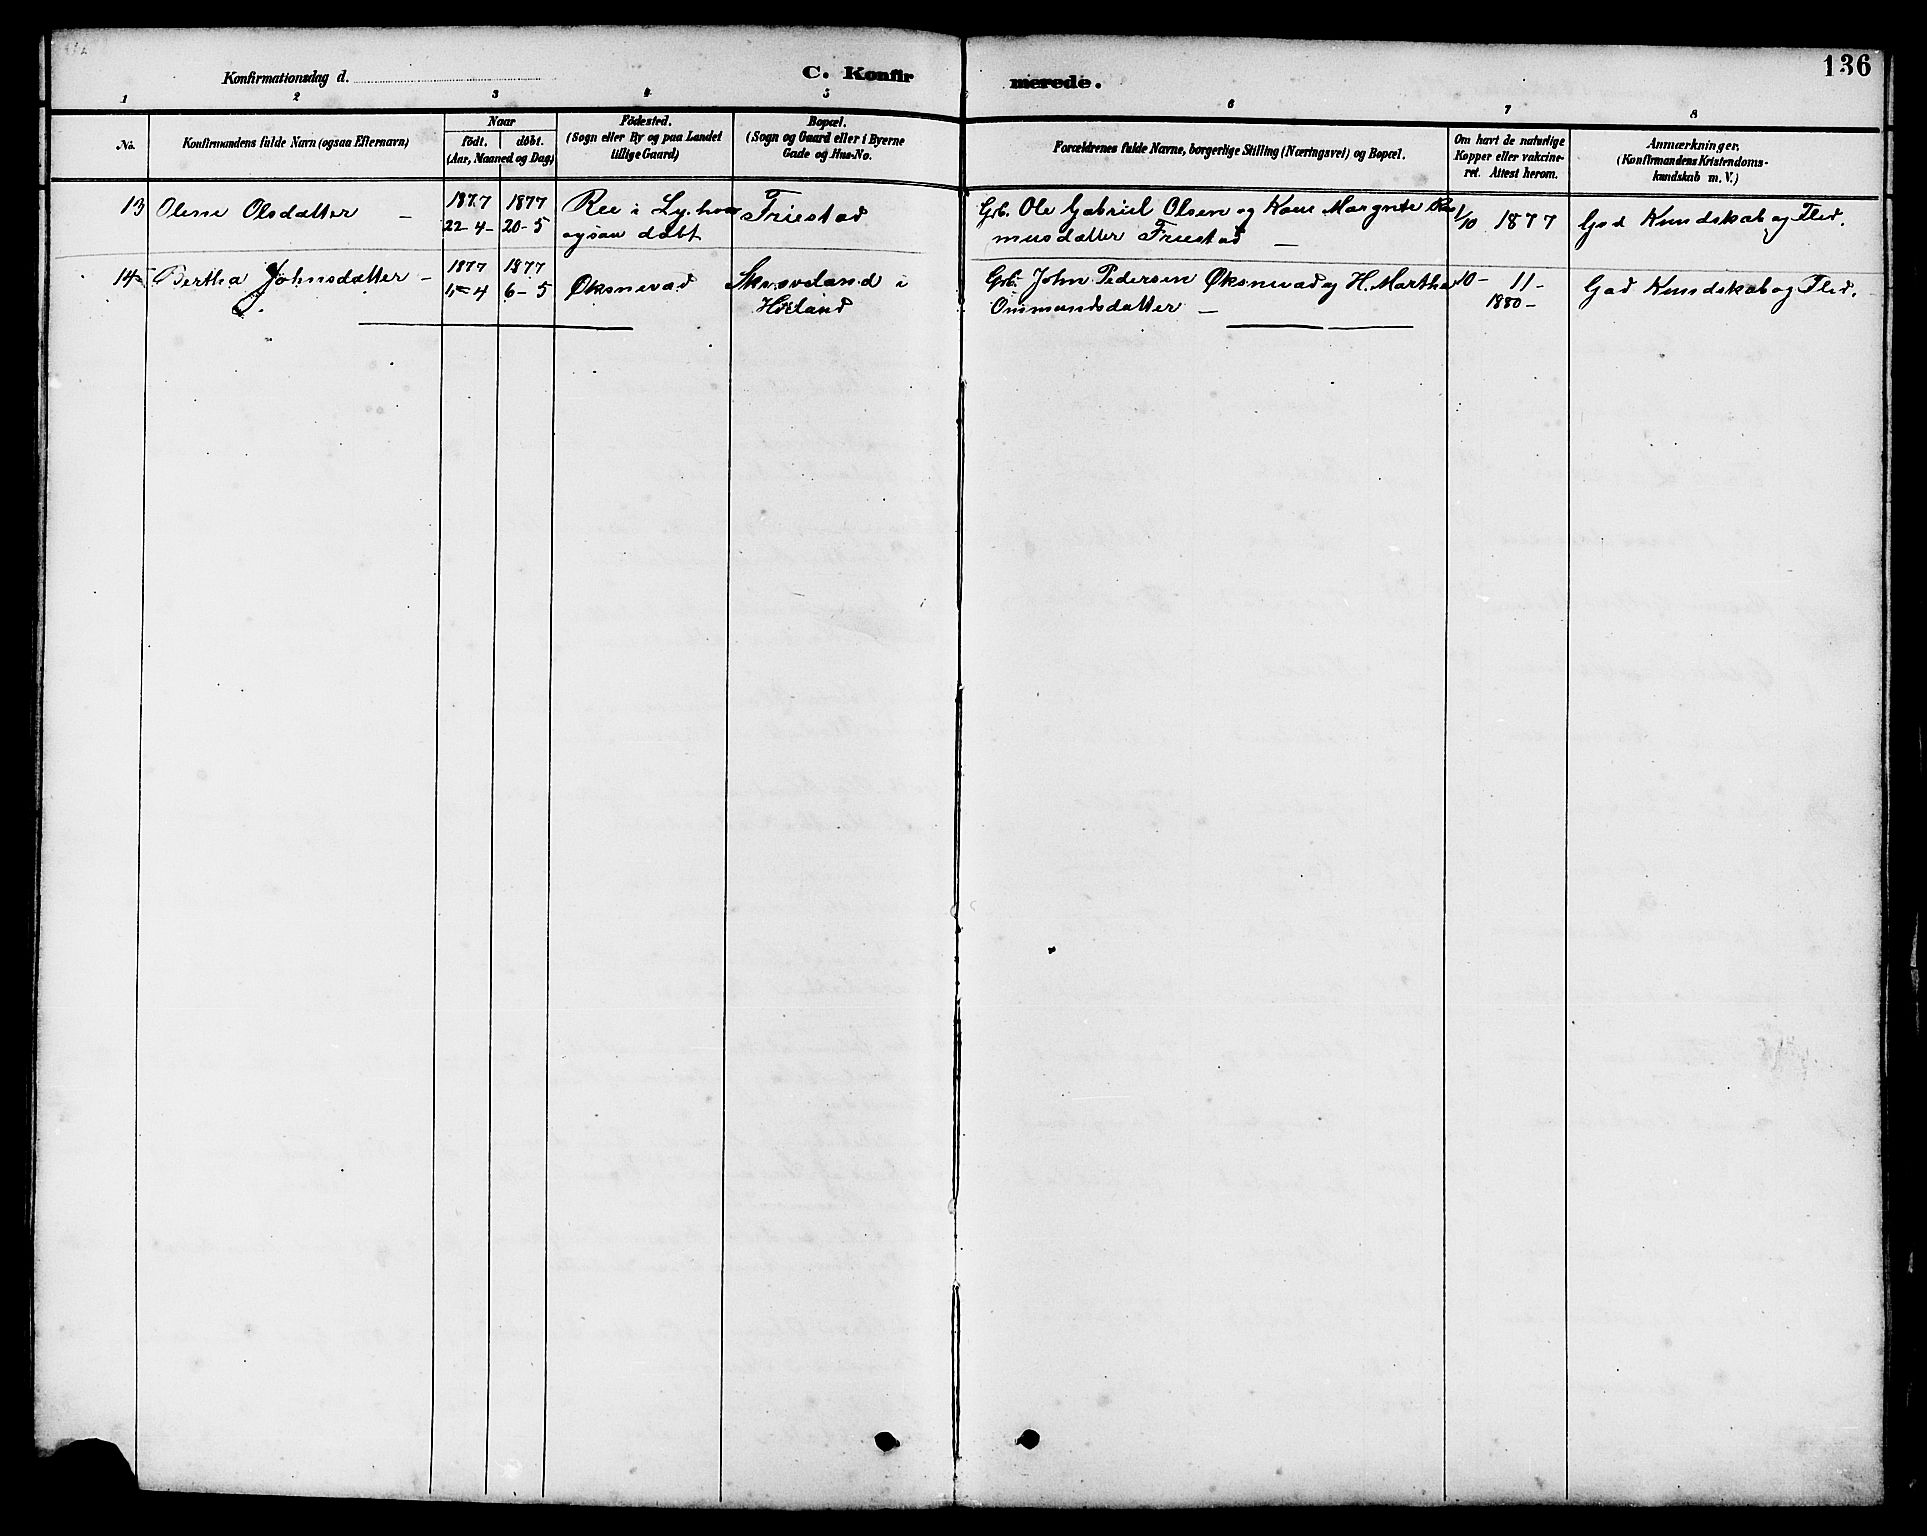 136
Konfirmationsdag d.
C. Konfirmerede.
1 2 3 4 5 6 7 8
No.
Konfirmandens fulde Navn (ogsaa Efternavn)
Naar
födt. döbt.
(Aar, Maaned og Dag)
Födested.
(Sogn eller By og paa Landet
tillige Gaard)
Bopæl.
(Sogn og Gaard eller i Byerne
Gade og Hus-No.
Forældrenes fulde Navne, borgerlige Stilling (Næringsvei) og Bopæl.
Om havt de naturlige
Kopper eller vakcine-
ret. Attest herom.
Anmærkninger.
(Konfirmandens Kristendoms-
kundskab m. V.)
13 Olene Olsdatter –
1877 1877
22-4- 20-5
Ree i Ly. hvor
ogsaa døbt
Friestad
Grb. Ole Gabriel Olsen og Kone Margrete Ras
musdatter Friestad –
1/10 1877
God Kundskab og Flid.
14 Bertha Johnsdatter –
1877 1877
6-5
Øksnevad
Skræveland i
Høiland
Grb. John Pedersen Øksnevad og H. Martha
Ommundsdatter –
10- 11-
1880-
God Kundskab og Flid.